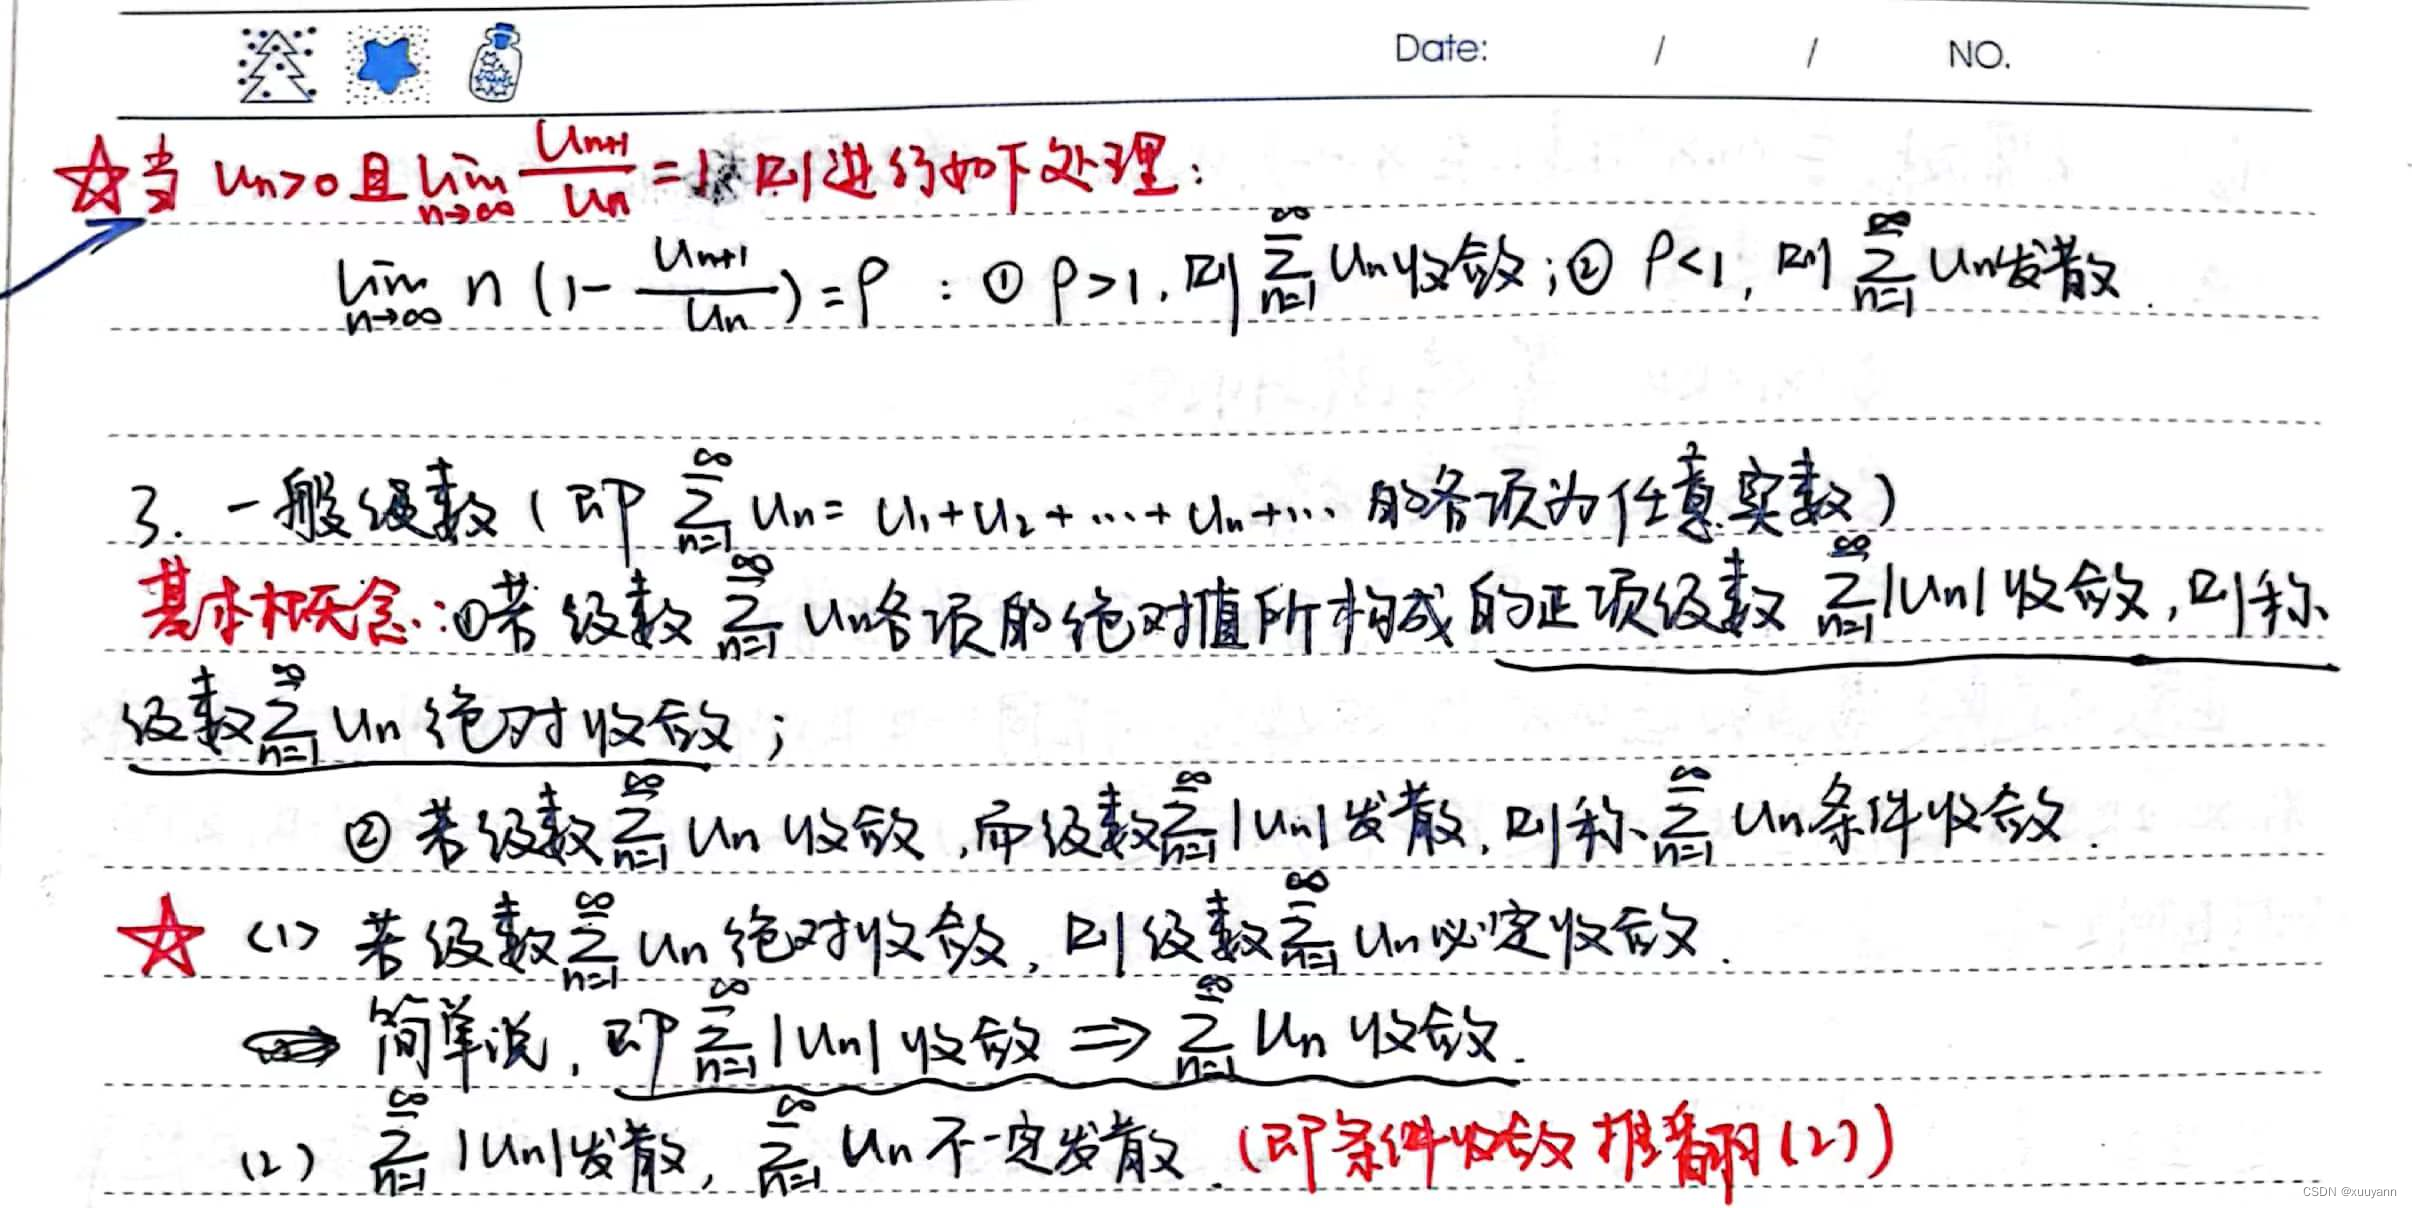 Date: / / NO.
☆当 Un>0 且 lim n→∞ Un+1/Un = 1 则进行如下处理:
lim n→∞ n(1-Un+1/Un)=ρ : ① ρ>1, 则 ∑n=1∞ Un收敛;② ρ<1, 则 ∑n=1∞ Un发散.
3. 一般级数(即 ∑n=1∞ Un= U1+U2+…+Un+… 的各项为任意实数)
基本概念:①若级数 ∑n=1∞ Un各项的绝对值所构成的正项级数 ∑n=1∞|Un|收敛,则称
级数∑n=1∞ Un绝对收敛;
② 若级数∑n=1∞ Un收敛,而级数∑n=1∞|Un|发散,则称∑n=1∞ Un条件收敛.
☆ (1) 若级数∑n=1∞ Un绝对收敛,则级数∑n=1∞ Un必定收敛.
简单说,即∑n=1∞|Un|收敛 ⇒ ∑n=1∞ Un收敛.
(2) ∑n=1∞|Un|发散, ∑n=1∞ Un不一定发散.(即条件收敛推翻(2))
CSDN @xuuyann